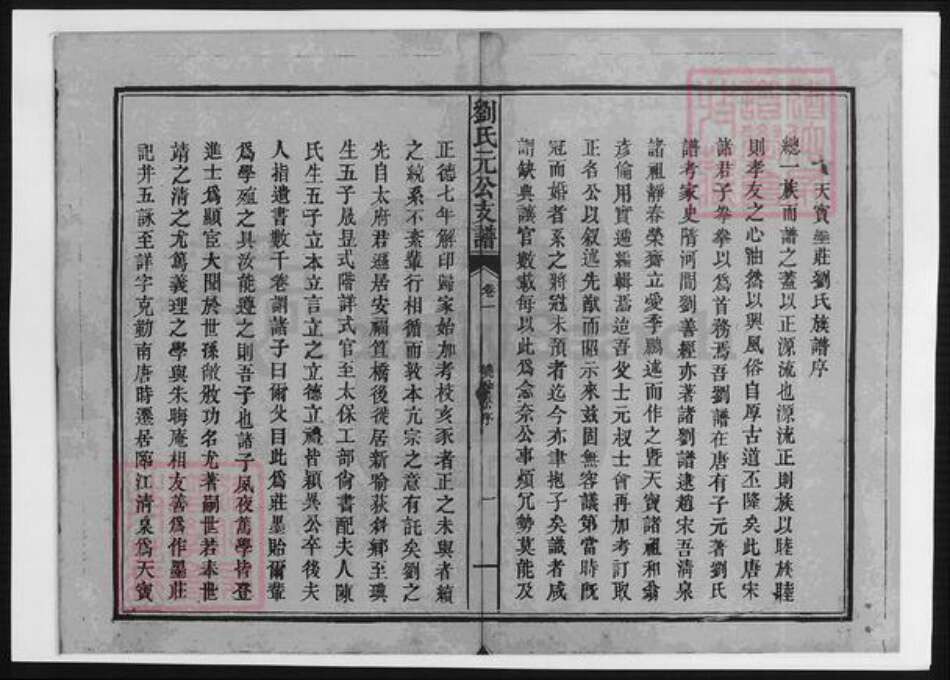 天寶墨莊劉氏族譜序
總一族而譜之蓋以正源流也源流正則族以睦族睦
則孝友之心油然以興風俗自厚古道丕隆矣此唐宋
諸君子拳拳以為首務焉吾劉譜在唐有子元著劉氏
譜考家史隋河間劉善經亦著諸劉譜逮趙宋吾清泉
諸祖靜春榮齋立愛季鵬述而作之暨天寶諸祖和翁
彥倫用實遞編輯焉迨吾父士元叔士會再加考訂取
正名公以叙述先猷而昭示來茲固無容議第當時既
冠而婚者系之將冠未預者迄今亦聿抱子矣識者咸
謂缺典讓官數載每以此為念奈公事頻冗勢莫能及
劉氏元公支譜
卷一
序
一
正德七年解印歸家始加考校亥豕者正之未與者續
之統系不紊輩行相循而敦本亢宗之意有託矣劉之
先自太府君遜居安福笪橋後徙居新喻荻斜鄉至璵
生五子晟昱式階詳式官至太保工部尙書配夫人陳
氏生五子立本立言立之立德立禮皆穎異公卒後夫
人指遺書數千卷謂諸子曰爾父目此為莊墨貽爾輩
為學殖之具汝能遵之則吾子也諸子夙夜篤學皆登
進士為顯宦大聞於世孫敞攽功名尤著嗣世若奉世
靖之清之尤篤義理之學與朱晦庵相友善為作墨莊
記并五詠至詳字克勤南唐時遷居臨江清泉為天寶